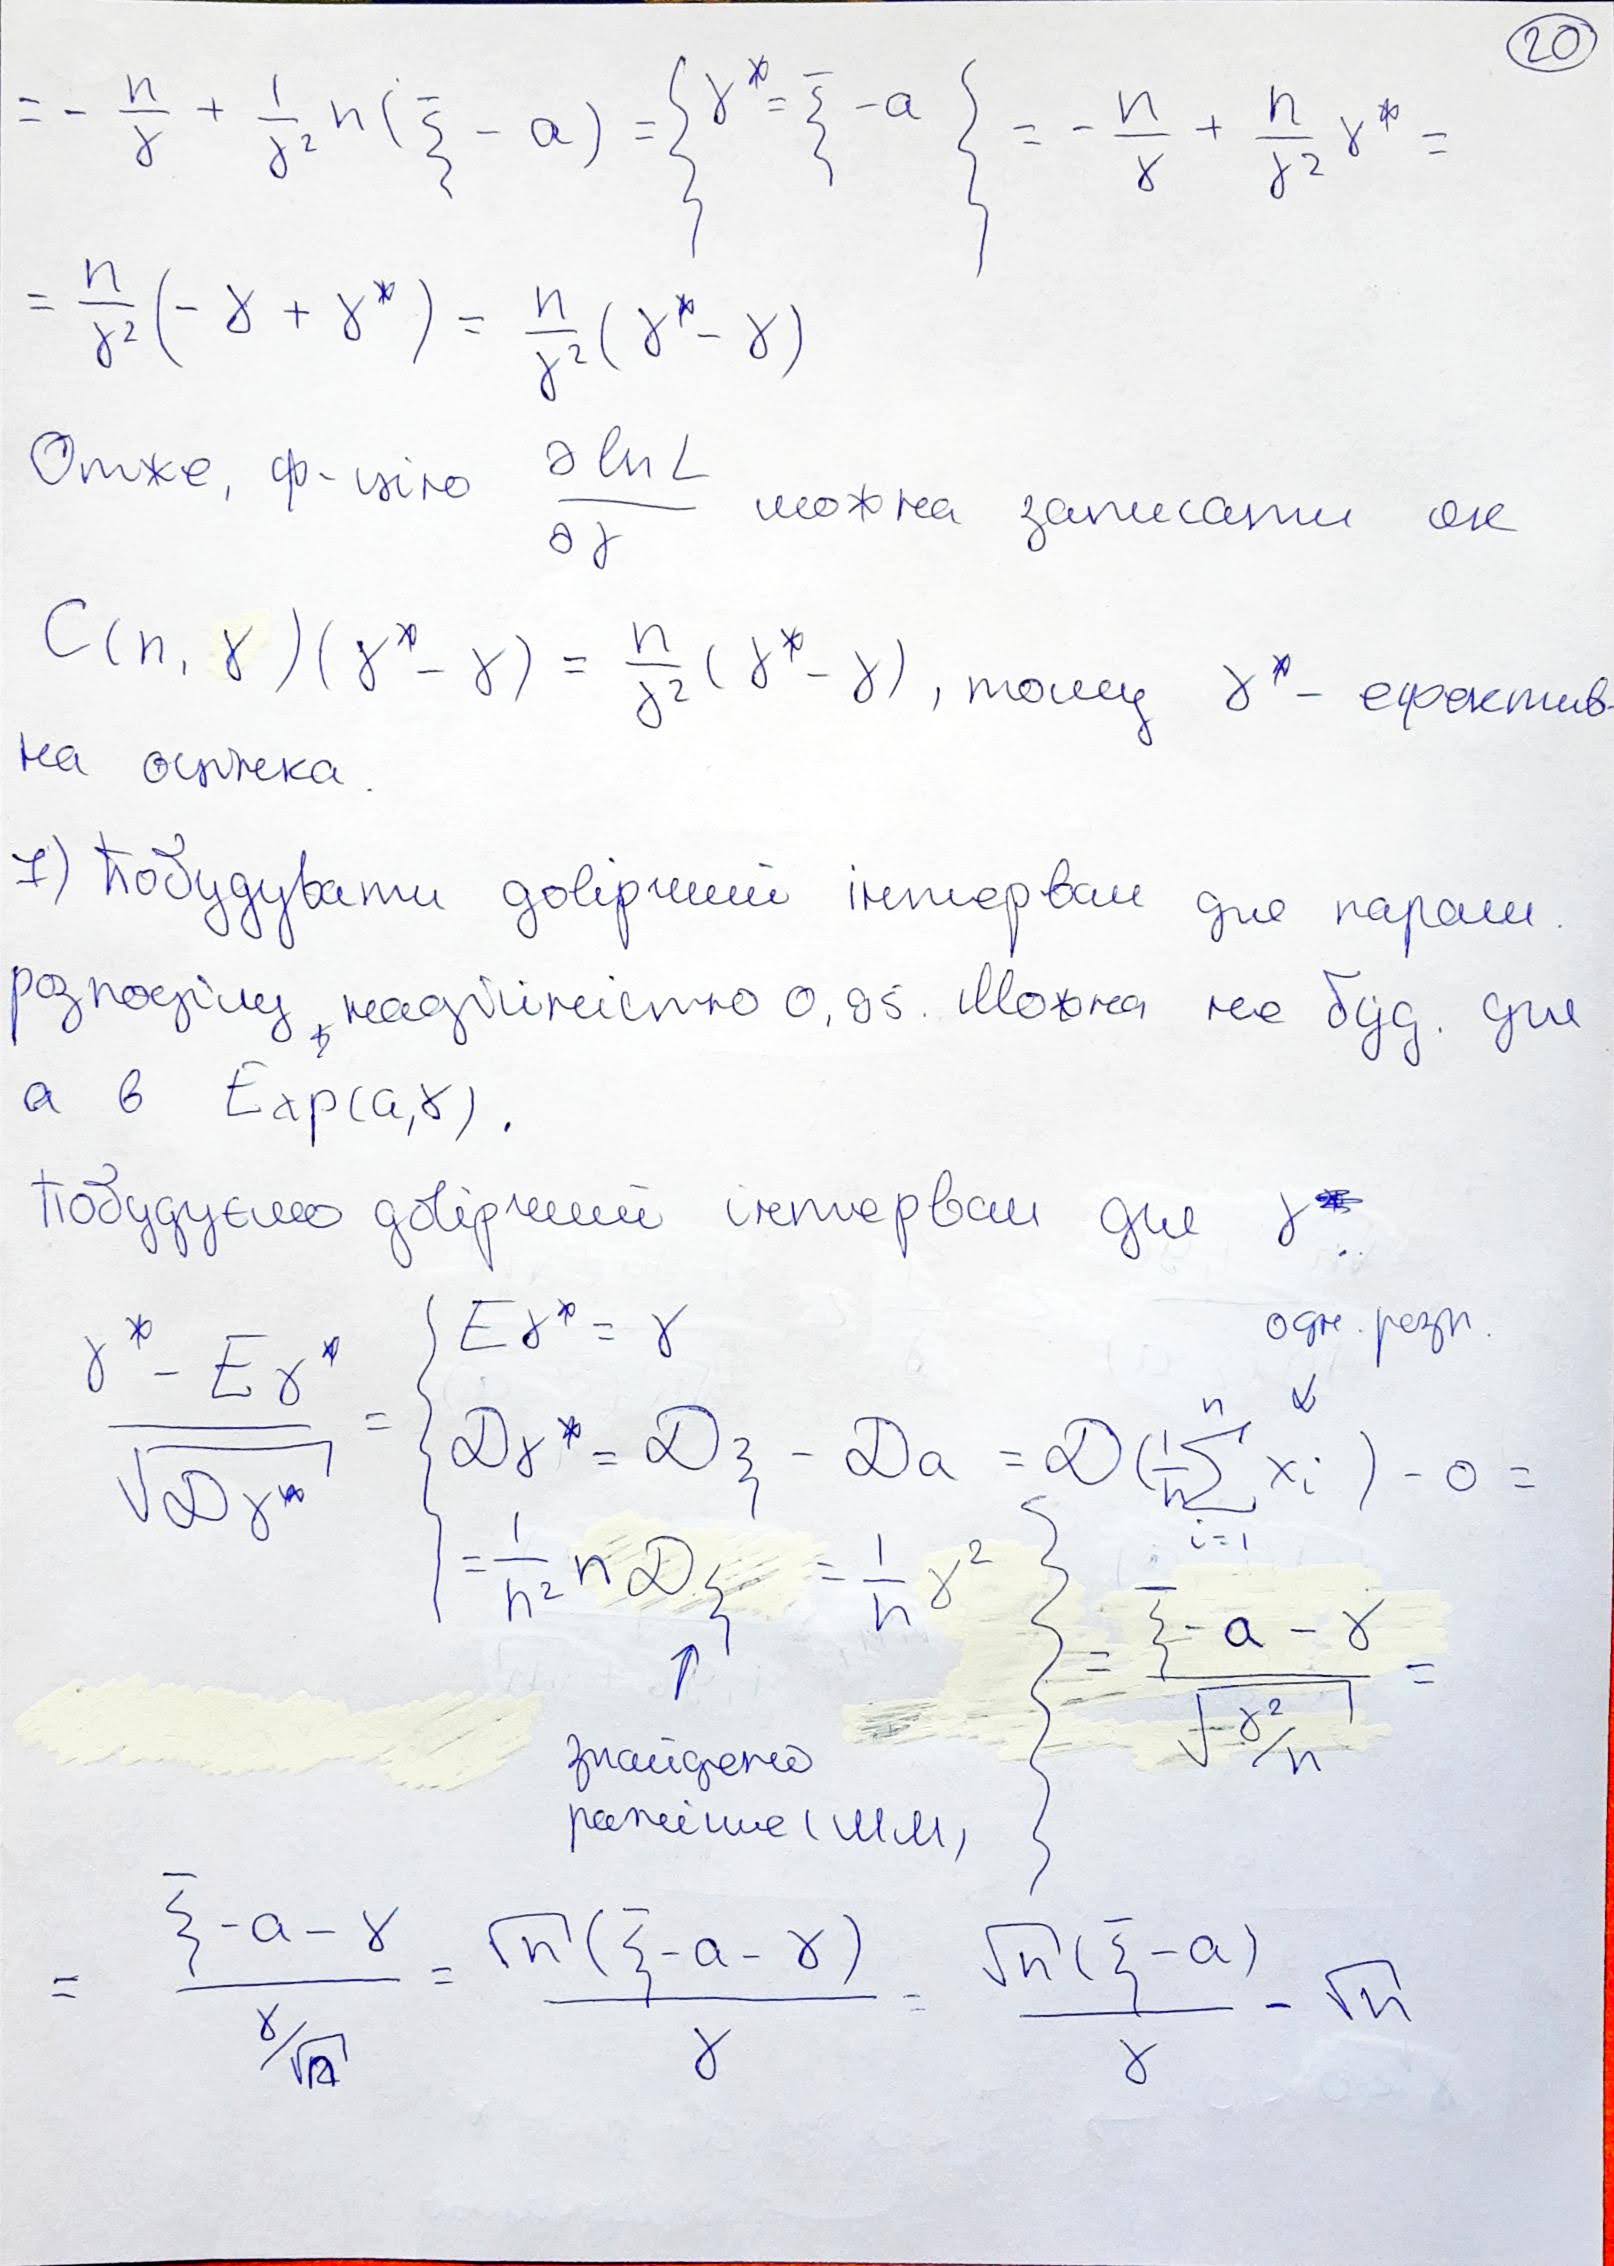 20
= - n/γ + 1/γ² n(ξ̄ - a) = { γ* = ξ̄ - a } = - n/γ + n/γ² γ* =
= n/γ² (- γ + γ*) = n/γ² (γ* - γ)
Отже, ф-цію ∂lnL/∂γ можна записати як
C(n, γ)(γ* - γ) = n/γ² (γ* - γ), тому γ* - ефектив-
на оцінка.
7) Побудувати довірчий інтервал для парам.
розподілу з надійністю 0,95. Можна не буд. для
a в Exp(a,γ).
Побудуємо довірчий інтервал для γ
(γ* - Eγ*)/√(Dγ*) = { Eγ* = γ
одн. розп.
↓
Dγ* = Dξ - Da = D(1/n ∑_{i=1}^{n} x_i) - 0 =
= 1/n² n Dξ = 1/n γ² } = (ξ̄ - a - γ)/√(γ²/n) =
↑
знайдено
раніше (ММ)
= (ξ̄ - a - γ)/(γ/√n) = √n(ξ̄ - a - γ)/γ = √n(ξ̄ - a)/γ - √n